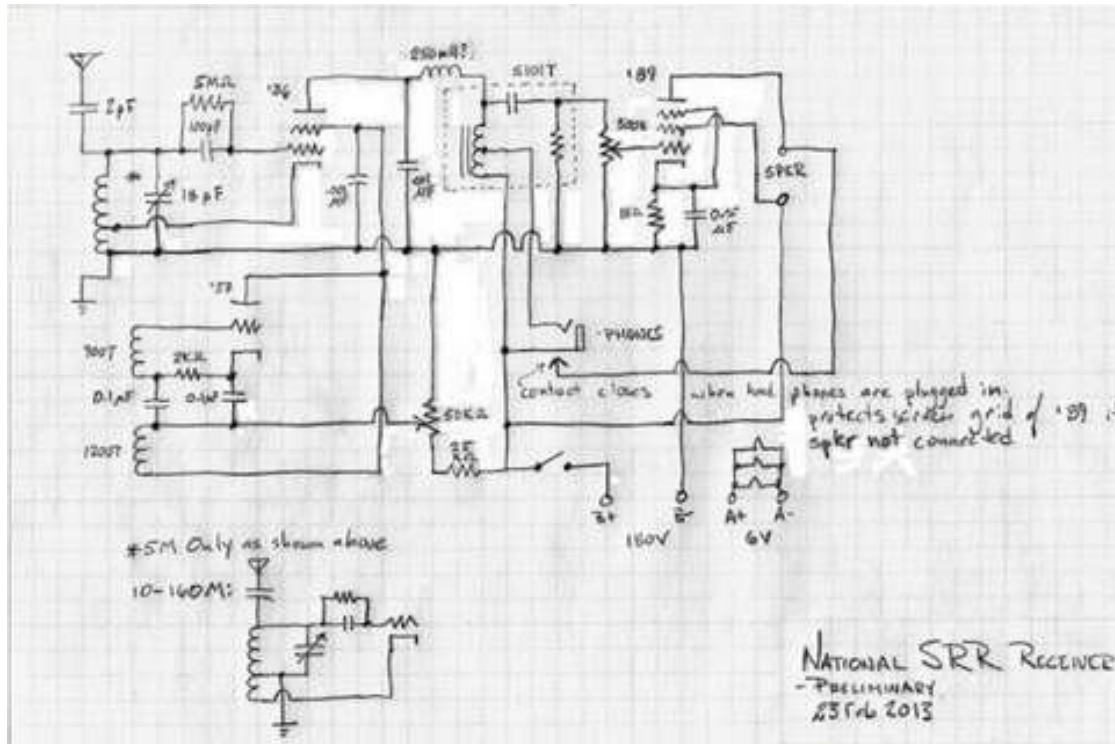 2pF
5MΩ
100pF
'36
250mH?
S101T
'89
500K
18pF
SPKR
'37
900T
2KΩ
0.1µF
1200T
50KΩ
PHONES
Contact closes when head phones are plugged in.
protects screen grid of '89 if
spkr not connected
B+
B-
A+
A-
180V
6V
*5M Only as shown above
10-160M:
NATIONAL SRR RECEIVER
- PRELIMINARY
23 Feb 2013